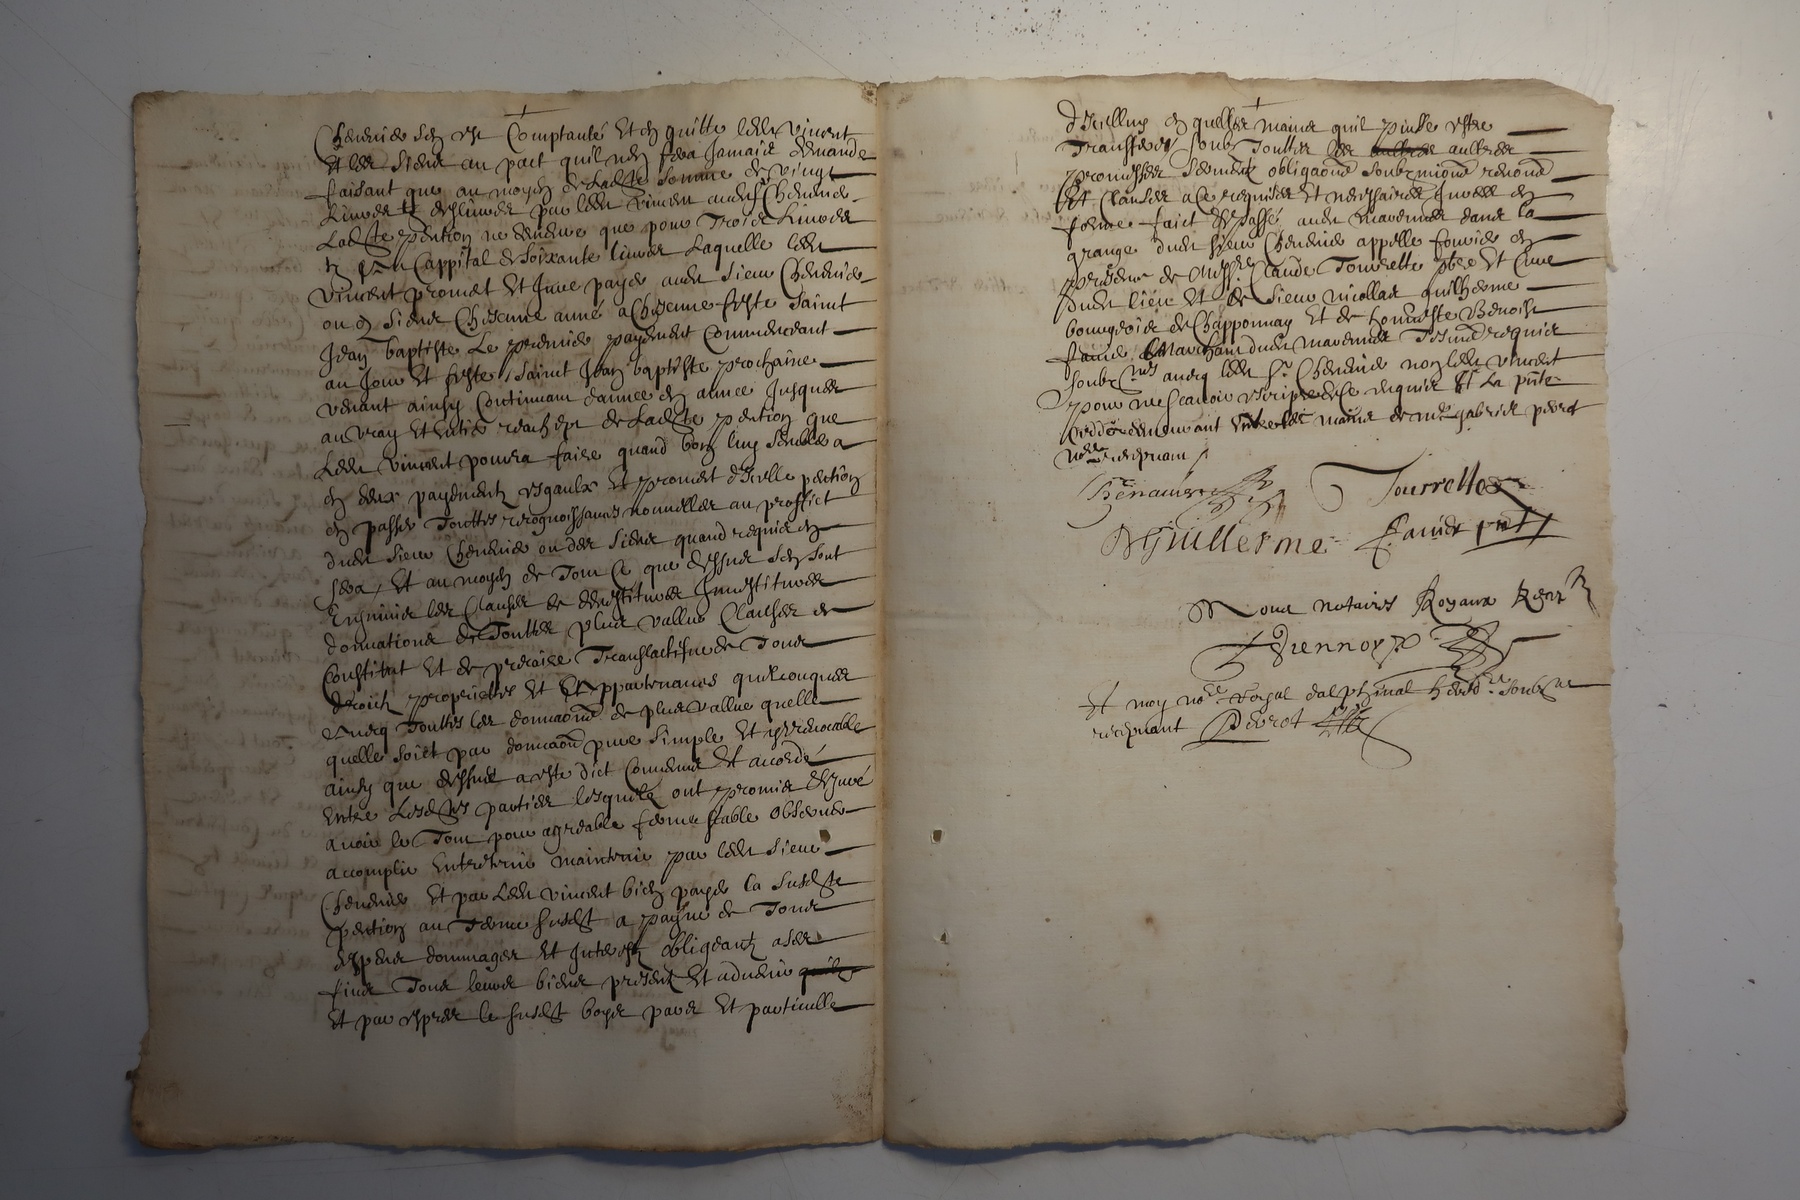 Chenevier s'en est Comptanté Et en quitte ledt vincent
Et les siens au pact qu'il n'en fera Jamais demande
faisant que au moyen de Ladte somme de vingt
Livres deslivrés par ledt vincent audt Sr Chenevier
Ladte pention ne demeure que pour Trois Livres
Cappital de soixante livres Laquelle ledt
vincent promet Et Jure payer audt sieur Chenevier
ou siens Chascune année a Chascune feste saint
Jean baptiste Le premier payement Commenceant
au Jour Et feste saint Jean baptiste prochaine
venant ainsy Continuant d'annee en annee Jusques
au vray Et entier reachept de Ladte pention que
Ledt vincent pourra faire quand bon luy semblera
en deux payementz esgaulx Et promet d'icelle pention
en passer Touttes recognoissances nouvelles au proffict
dudt sieur Chenevier ou des siens quand requis en
sera, Et au moyen de Tout Ce que dessus s'en sont
les Clauses de devestitures Investitures
donnations de Touttes plus vallues Clauses de
Constitut Et de precaire Translactifve de Tous
droictz proprietés Et appartenances quelconques
avecq Touttes les donnaons de plus vallue quelle
quelle soict par donnaon pure simple Et irrevocable
ainsy que dessus a esté dict Convenu Et accordé
Entre Lesdtes parties lesquelz ont promis Et juré
avoir le Tout pour agreable ferme stable observer
accomplir entretenir maintenir par ledt sieur
Chenevier Et par Ledt vincent bien payer la susdte
pention au Terme susdt a payne de Tous
despens dommages Et Interestz obligeantz a ses
fins Tous leurs biens presentz Et advenir
Et par exprès le susdt boys paves Et particulle
d'icelluy en quelles mains qu'il puisse estre
Transferé soubz Touttes les aultres
promesses sermentz obligaons soubzmions renons
Et Clauses a ce requises Et necessaires
forme faict Et passé audt Marennes dans la
grange dudt sieur Chenevier appellé en
presence de Messre Claude Tourrette pbre Et Curé
dudt lieu Et de sieur nicollas guilherme
bourgeois de Chapponnay Et de honneste Benoist
faure Marchant dudt Marennes Tesmoins requis
soubznes avecq ledt Sr Chenevier non ledt vincent
pour ne scavoir escripre de ce requis Et La pnte
entre les mains de me gabriel perrot
nore recepvant
Chenavier Tourrettes
N guillerme faure pnt
Nous notaires Royaux
Et moy nore royal dalphinal heredre soubzné
recepvant Perrot